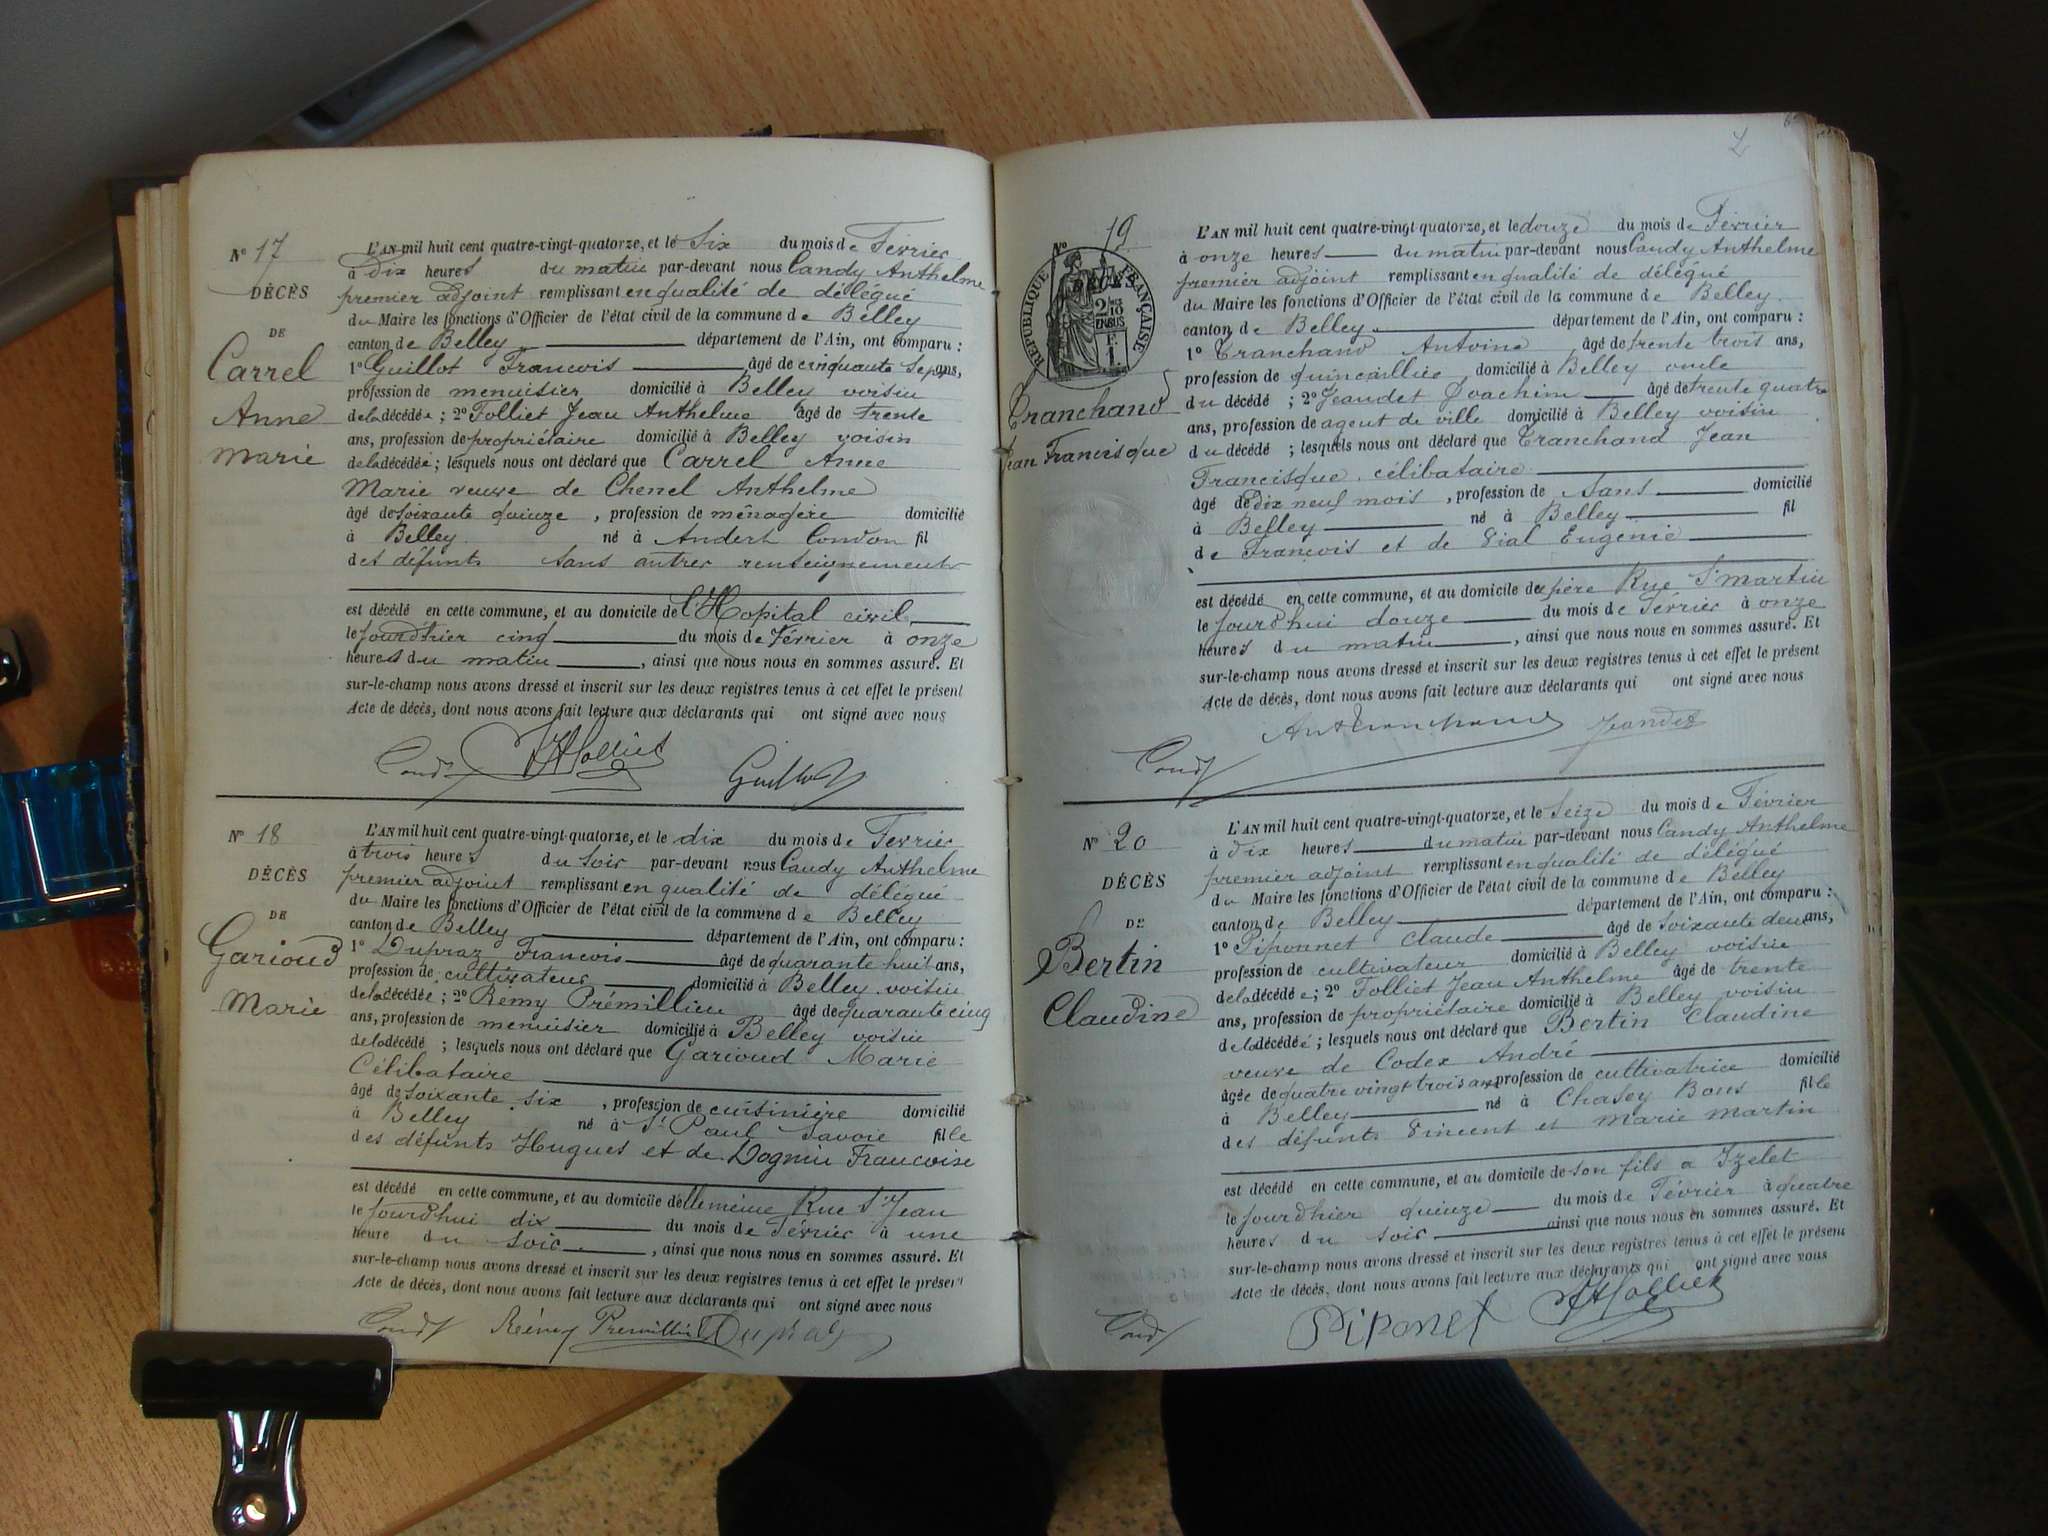 N° 17
DÉCÈS
DE
Carrel
Anne
Marie
L'AN mil huit cent quatre-vingt-quatorze, et le Six du mois de Février
à Dix heures du matin par-devant nous Candy Anthelme
premier adjoint remplissant en qualité de délégué
du Maire les fonctions d'Officier de l'état civil de la commune de Belley
canton de Belley département de l'Ain, ont comparu :
1° Guillot Francois âgé de cinquante Sept ans,
profession de menuisier domicilié à Belley voisin
de la décédée ; 2° Folliet Jean Anthelme âgé de trente
ans, profession de propriétaire domicilié à Belley voisin
de la décédée ; lesquels nous ont déclaré que Carrel Anne
Marie veuve de Chenel Anthelme
âgé de soixante quinze , profession de ménagère domicilié
à Belley né à Andert Condon fil
des défunts Sans autres renseignements
est décédé en cette commune, et au domicile de l'Hopital civil
le Jourd'hier cinq du mois de Février à onze
heures du matin , ainsi que nous nous en sommes assuré. Et
sur-le-champ nous avons dressé et inscrit sur les deux registres tenus à cet effet le présent
Acte de décès, dont nous avons fait lecture aux déclarants qui ont signé avec nous
Candy JAFolliet
Guillot
N° 18
DÉCÈS
DE
Garioud
Marie
L'AN mil huit cent quatre-vingt-quatorze, et le dix du mois de Février
à trois heures du Soir par-devant nous Candy Anthelme
premier adjoint remplissant en qualité de délégué
du Maire les fonctions d'Officier de l'état civil de la commune de Belley
canton de Belley département de l'Ain, ont comparu :
1° Dupraz Francois âgé de quarante huit ans,
profession de cultivateur domicilié à Belley voisin
de la décédée ; 2° Rémy Prémillieu âgé de quarante cinq
ans, profession de menuisier domicilié à Belley voisin
de la décédé ; lesquels nous ont déclaré que Garioud Marie
Célibataire
âgé de Soixante six , profession de cuisinière domicilié
à Belley né à St Paul Savoie fille
des défunts Hugues et de Dognin Francoise
est décédé en cette commune, et au domicile d'elle même Rue St Jean
le Jourd'hui dix du mois de Février à une
heure du Soir , ainsi que nous nous en sommes assuré. Et
sur-le-champ nous avons dressé et inscrit sur les deux registres tenus à cet effet le présent
Acte de décès, dont nous avons fait lecture aux déclarants qui ont signé avec nous
Candy Rémy Premillieu Dupraz
N° 19
RÉPUBLIQUE FRANÇAISE
Tranchand
Jean Francisque
L'AN mil huit cent quatre-vingt-quatorze, et le douze du mois de Février
à onze heures du matin par-devant nous Candy Anthelme
premier adjoint remplissant en qualité de délégué
du Maire les fonctions d'Officier de l'état civil de la commune de Belley
canton de Belley département de l'Ain, ont comparu :
1° Tranchand Antoine âgé de trente trois ans,
profession de quincaillier domicilié à Belley oncle
du décédé ; 2° Jeandet Joachim âgé de trente quatre
ans, profession de agent de ville domicilié à Belley voisin
du décédé ; lesquels nous ont déclaré que Tranchand Jean
Francisque célibataire
âgé de Dix neuf mois , profession de Sans domicilié
à Belley né à Belley fil
de Francois et de Vial Eugénie
est décédé en cette commune, et au domicile de père Rue St Martin
le Jourd'hui douze du mois de Février à onze
heures du matin , ainsi que nous nous en sommes assuré. Et
sur-le-champ nous avons dressé et inscrit sur les deux registres tenus à cet effet le présent
Acte de décès, dont nous avons fait lecture aux déclarants qui ont signé avec nous
Ant Tranchand Jeandet
Candy
N° 20
DÉCÈS
DE
Bertin
Claudine
L'AN mil huit cent quatre-vingt-quatorze, et le Seize du mois de Février
à dix heures du matin par-devant nous Candy Anthelme
premier adjoint remplissant en qualité de délégué
du Maire les fonctions d'Officier de l'état civil de la commune de Belley
canton de Belley département de l'Ain, ont comparu :
1° Piponnet Claude âgé de Soixante deux ans,
profession de cultivateur domicilié à Belley voisin
de la décédée ; 2° Folliet Jean Anthelme âgé de trente
ans, profession de propriétaire domicilié à Belley voisin
de la décédée ; lesquels nous ont déclaré que Bertin Claudine
veuve de Codex André
âgée de quatre vingt trois ans profession de cultivatrice domicilié
à Belley né à Chasey Bons fille
des défunts Vincent et Marie Martin
est décédé en cette commune, et au domicile de son fils a Izelet
le Jourd'hier quinze du mois de Février à quatre
heures du soir ainsi que nous nous en sommes assuré. Et
sur-le-champ nous avons dressé et inscrit sur les deux registres tenus à cet effet le présent
Acte de décès, dont nous avons fait lecture aux déclarants qui ont signé avec nous
Candy Piponet JAFolliet